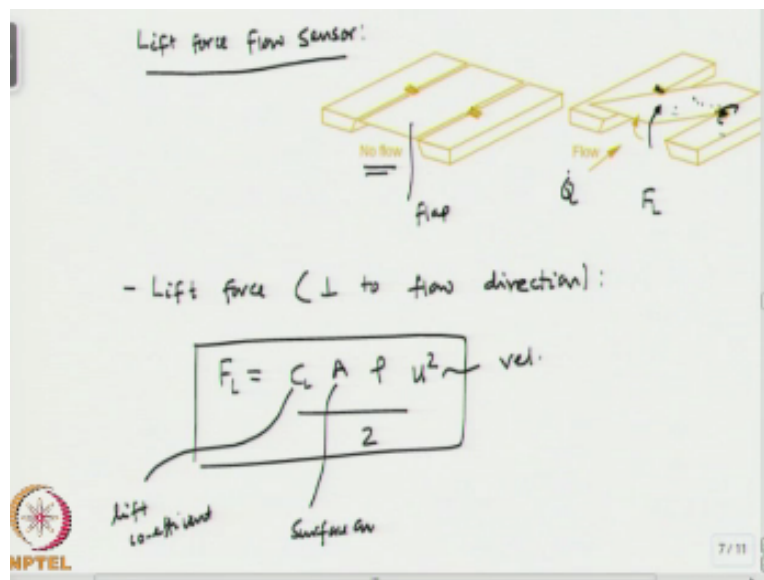 Lift force flow sensor:
No flow
Flow
flap
Q̇
F_L
- Lift force (⊥ to flow direction):
F_L = C_L A ρ u² vel.
2
lift
co-efficient
Surface
NPTEL
7/11